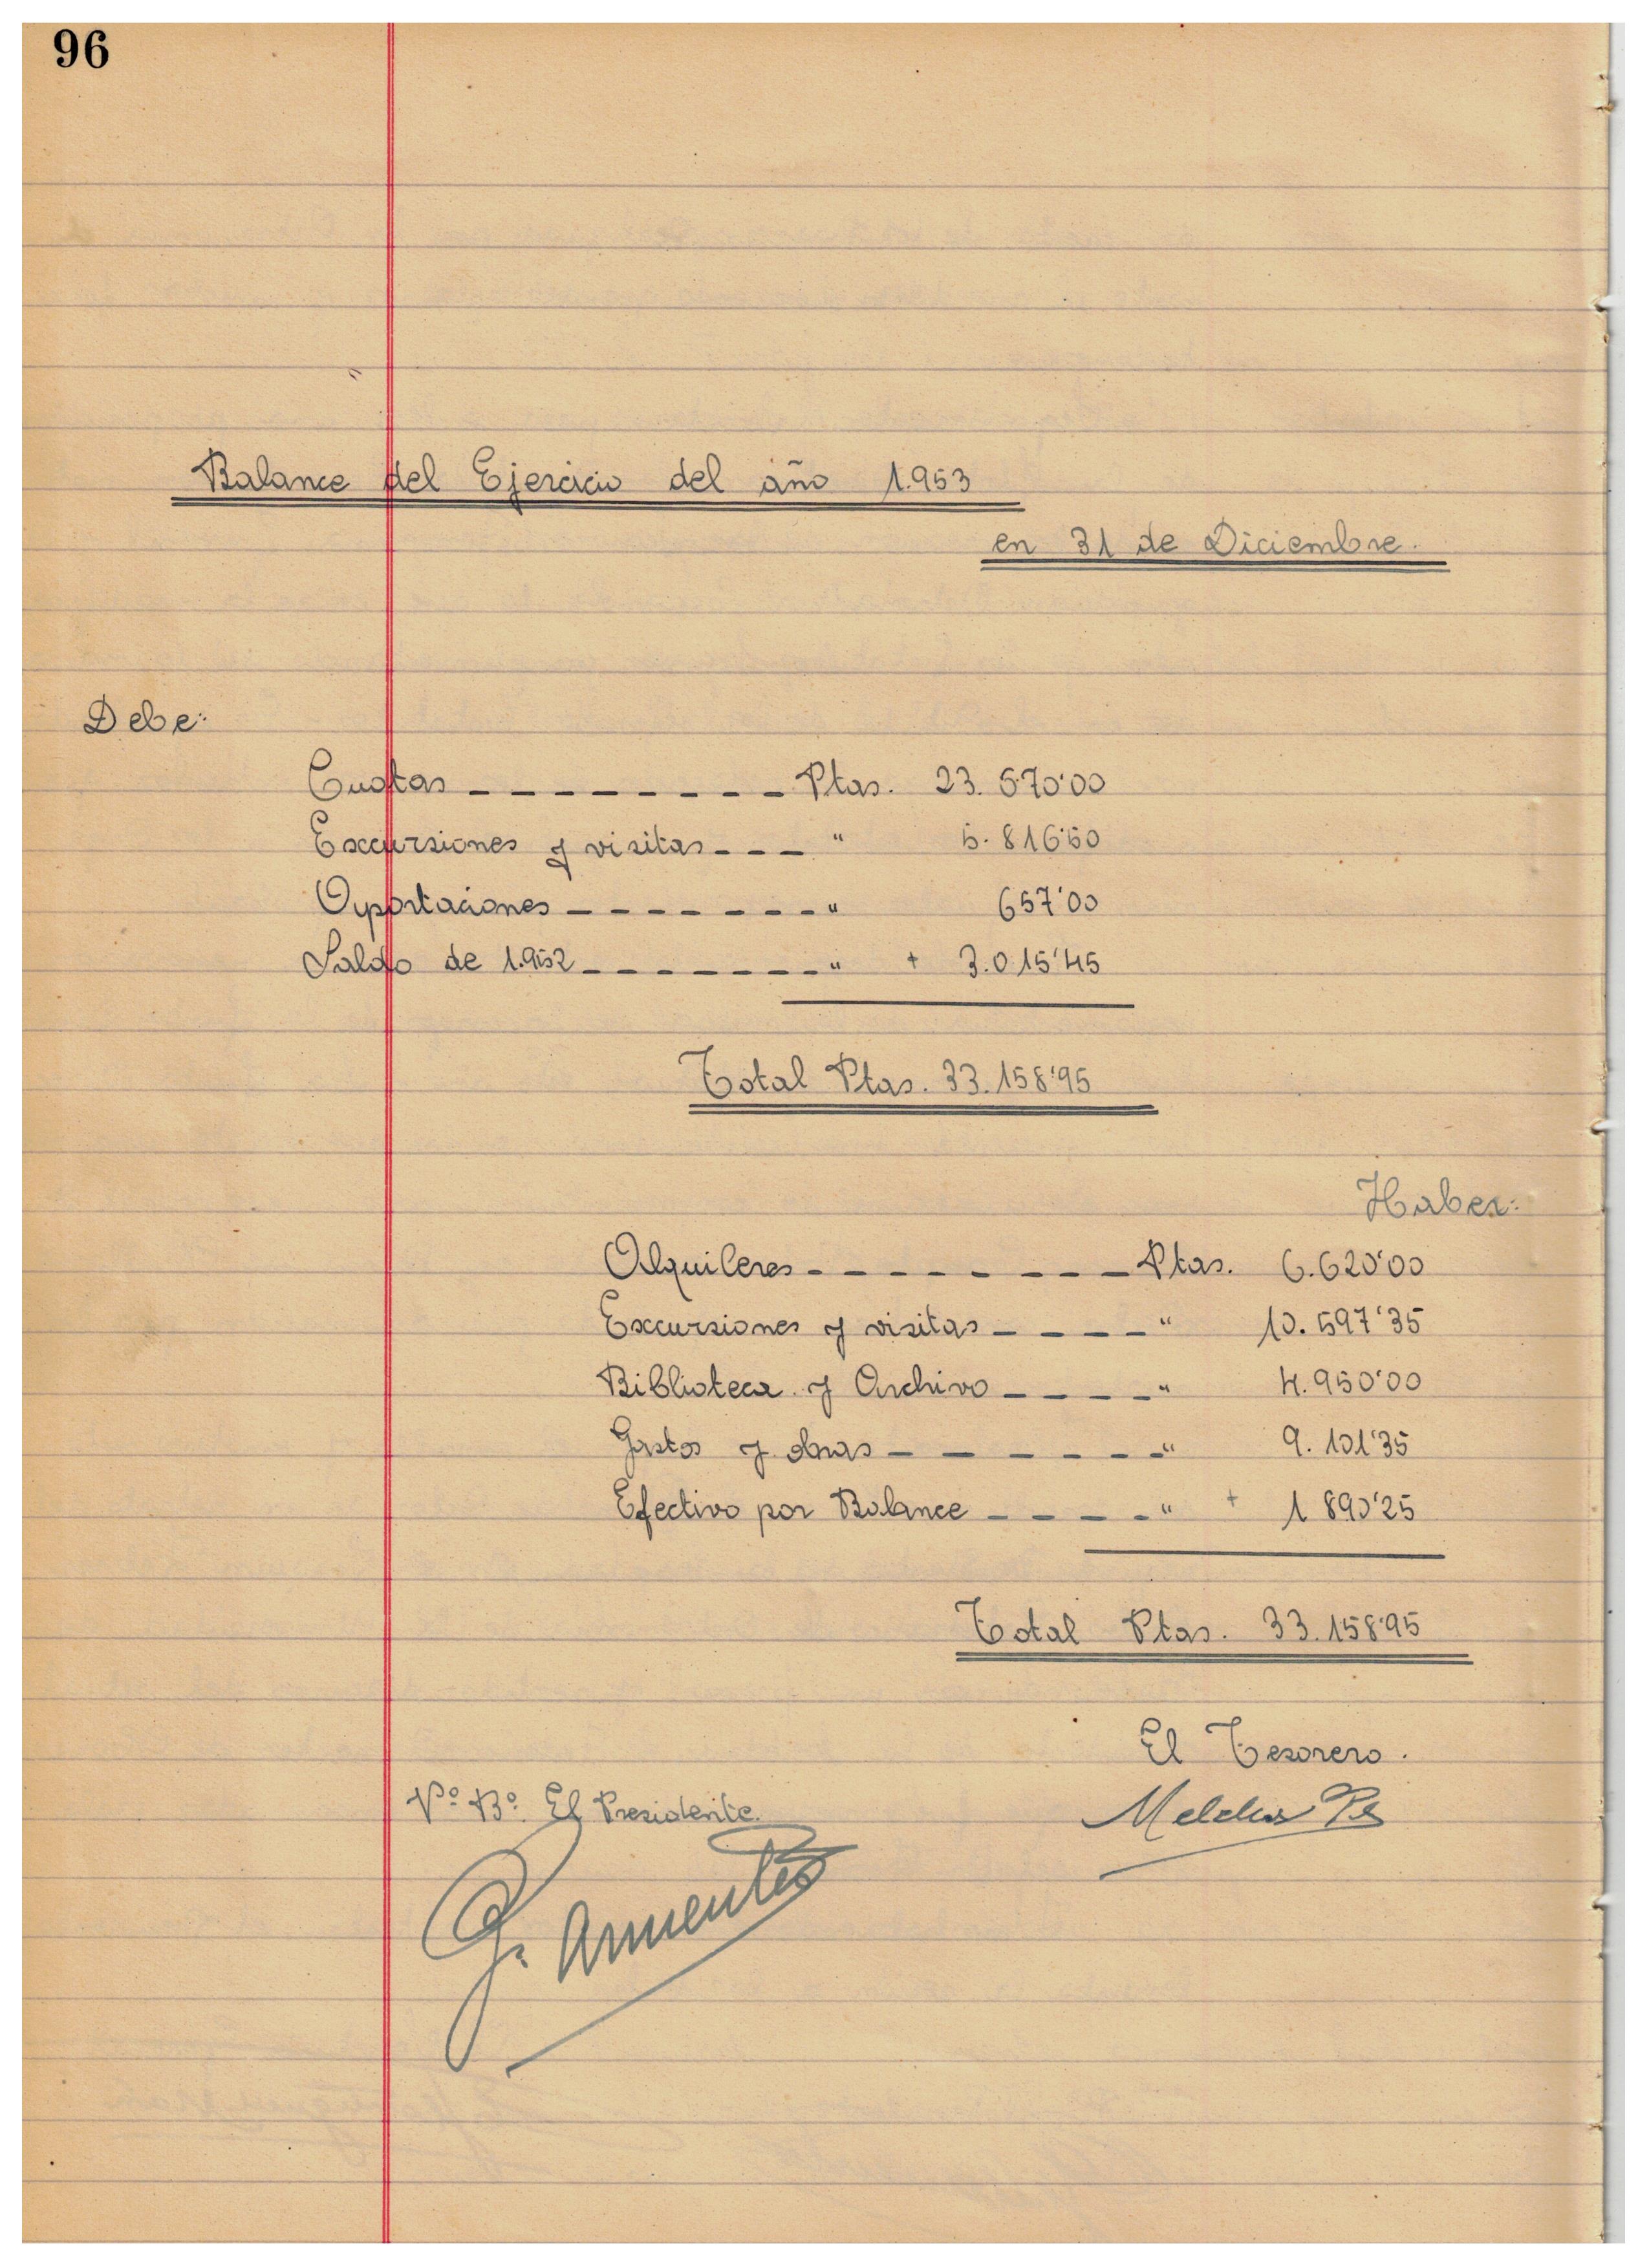 96
Balance del Ejercicio del año 1.953
en 31 de Diciembre.
Debe:
Cuotas - - - - - - - - - Ptas. 23.670'00
Excursiones y visitas - - - - " 5.816'50
Aportaciones - - - - - - - - " 657'00
Saldo de 1.952 - - - - - - - - " + 3.015'45
Total Ptas. 33.158'95
Haber:
Alquileres - - - - - - - - - Ptas. 6.620'00
Excursiones y visitas - - - - - " 10.597'35
Biblioteca y Archivo - - - - - " 4.950'00
Gastos y obras - - - - - - - " 9.101'35
Efectivo por Balance - - - - - " + 1.890'25
Total Ptas. 33.158'95
El Tesorero.
Vº Bº El Presidente.
Melchor